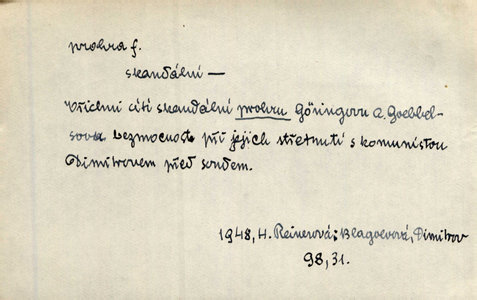 prohra f.
skandální —
Všichni cítí skandální prohru Göringovu a Goebbel-
sovu bezmocnost při jejich střetnutí s komunistou
Dimitrovem před soudem.
1948, H. Reinerová: Blagoevová, Dimitrov
98, 31.